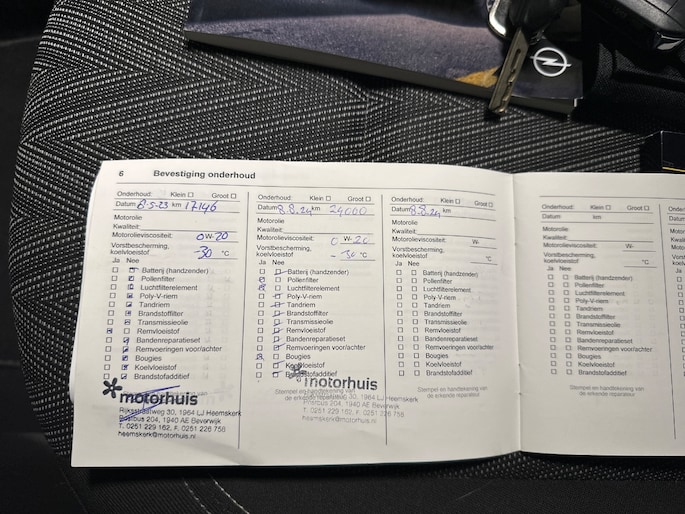 6 Bevestiging onderhoud
Onderhoud: Klein Groot
Datum 8-5-23 km 17146
Motorolie
Kwaliteit:
Motorolieviscositeit: 0W-20
Vorstbescherming,
koelvloeistof -30 °C
Ja Nee
Batterij (handzender)
Pollenfilter
Luchtfilterelement
Poly-V-riem
Tandriem
Brandstoffilter
Transmissieolie
Remvloeistof
Bandenreparatieset
Remvoeringen voor/achter
Bougies
Koelvloeistof
Brandstofadditief
motorhuis
Rijksstraatweg 30, 1964 LJ Heemskerk
Postbus 204, 1940 AE Beverwijk
T. 0251 229 162, F. 0251 226 758
heemskerk@motorhuis.nl
Onderhoud: Klein Groot
Datum 8.8.24 km 24000
Motorolie
Kwaliteit:
Motorolieviscositeit: 0W-20
Vorstbescherming,
koelvloeistof -30 °C
Ja Nee
Batterij (handzender)
Pollenfilter
Luchtfilterelement
Poly-V-riem
Tandriem
Brandstoffilter
Transmissieolie
Remvloeistof
Bandenreparatieset
Remvoeringen voor/achter
Bougies
Koelvloeistof
Brandstofadditief
Stempel en handtekening van
de erkende reparateur
motorhuis
30, 1964 LJ Heemskerk
Postbus 204, 1940 AE Beverwijk
T. 0251 229 162, F. 0251 226 758
heemskerk@motorhuis.nl
Onderhoud: Klein Groot
Datum 8.8.24 km
Motorolie
Kwaliteit:
Motorolieviscositeit: W-
Vorstbescherming,
koelvloeistof °C
Ja Nee
Batterij (handzender)
Pollenfilter
Luchtfilterelement
Poly-V-riem
Tandriem
Brandstoffilter
Transmissieolie
Remvloeistof
Bandenreparatieset
Remvoeringen voor/achter
Bougies
Koelvloeistof
Brandstofadditief
Stempel en handtekening van
de erkende reparateur
Onderhoud: Klein Groot
Datum km
Motorolie
Kwaliteit:
Motorolieviscositeit: W-
Vorstbescherming,
koelvloeistof °C
Ja Nee
Batterij (handzender)
Pollenfilter
Luchtfilterelement
Poly-V-riem
Tandriem
Brandstoffilter
Transmissieolie
Remvloeistof
Bandenreparatieset
Remvoeringen voor/achter
Bougies
Koelvloeistof
Brandstofadditief
Stempel en handtekening van
de erkende reparateur